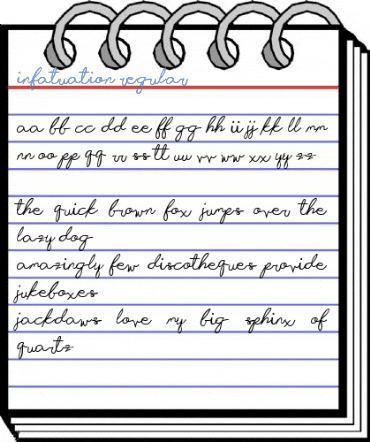 infatuation regular
aa bb cc dd ee ff gg hh ii jj kk ll mm
nn oo pp qq rr ss tt uu vv ww xx yy zz
the quick brown fox jumps over the
lazy dog
amazingly few discotheques provide
jukeboxes
jackdaws love my big sphinx of
quartz